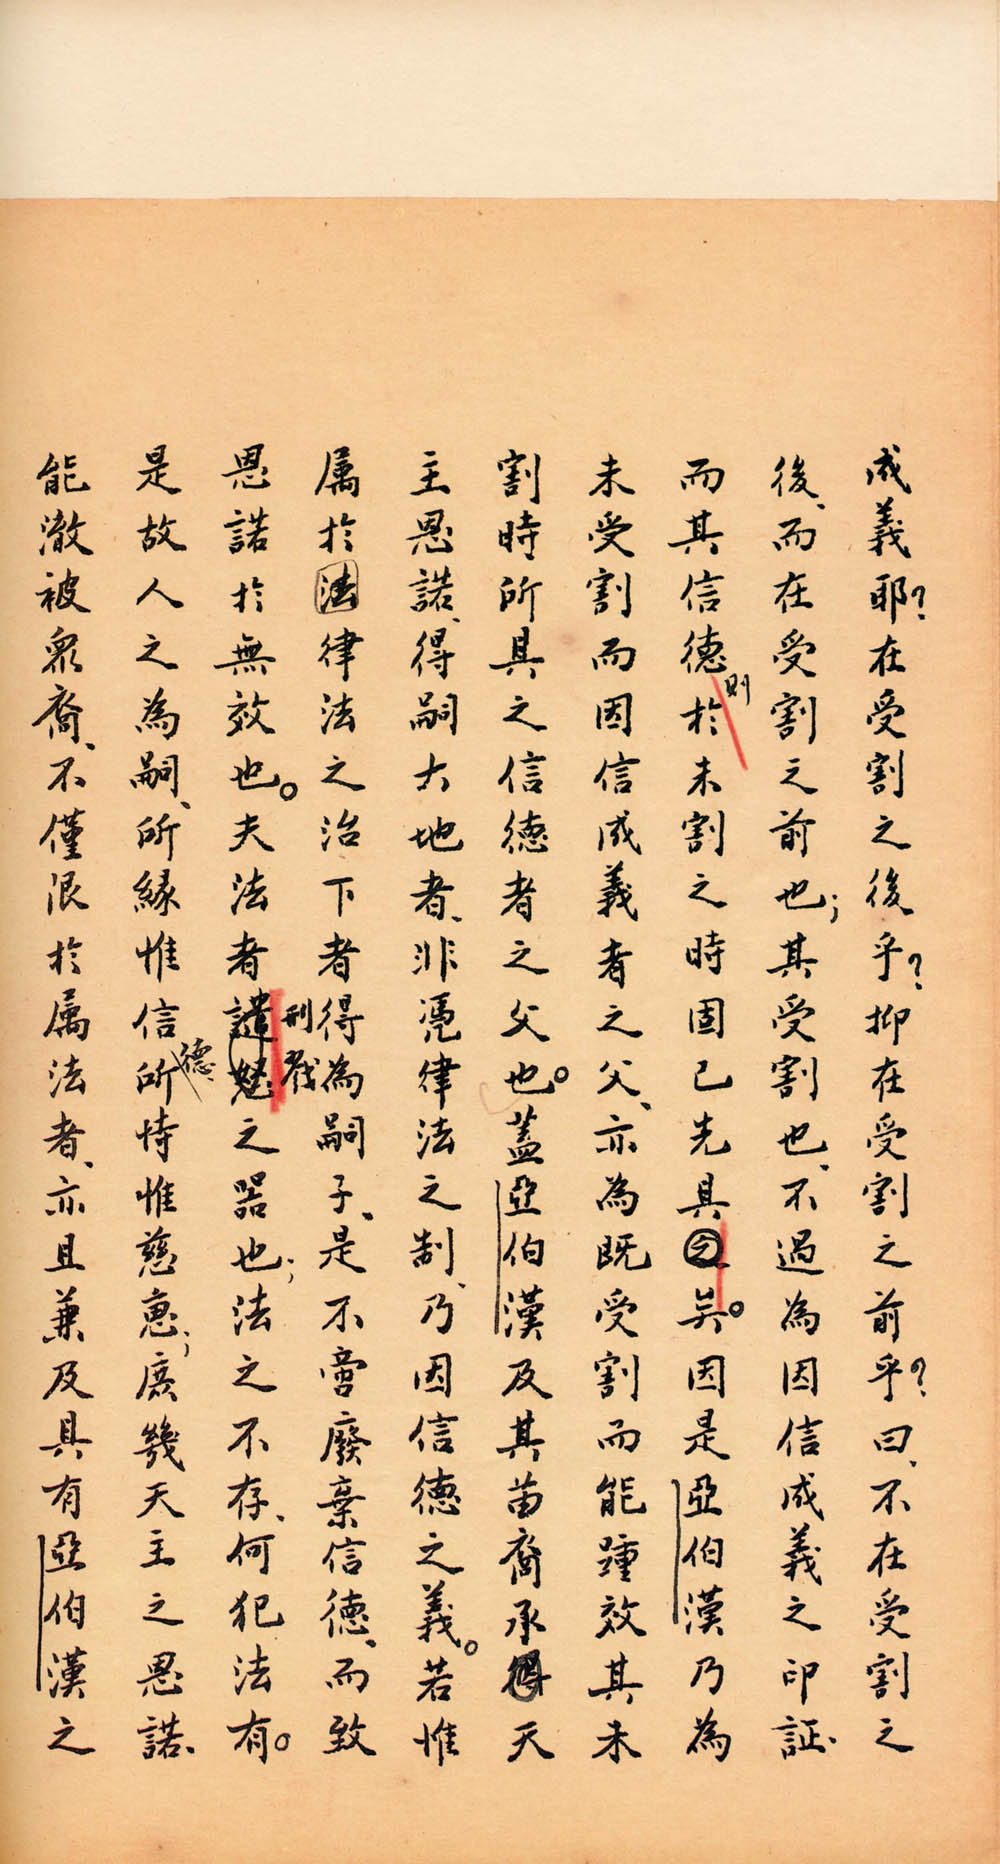 成義耶？在受割之後乎？抑在受割之前乎？曰、不在受割之
後、而在受割之前也；其受割也、不過為因信成義之印証、
而其信德則於未割之時固已先具之矣。因是亞伯漢乃為
未受割而因信成義者之父、亦為既受割而能踵效其未
割時所具之信德者之父也。蓋亞伯漢及其苗裔承天
主恩諾、得嗣大地者、非憑律法之制、乃因信德之義。若惟
属於法律法之治下者得為嗣子、是不啻廢棄信德、而致
恩諾於無效也。夫法者譴怒刑戮之器也；法之不存、何犯法有。
是故人之為嗣、所緣惟信德所恃惟慈恵；庶幾天主之恩諾、
能澈被衆裔、不僅限於属法者、亦且兼及具有亞伯漢之